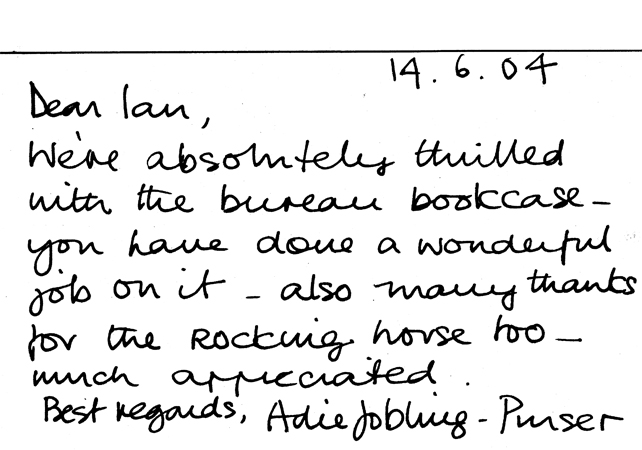 14.6.04
Dear Ian,
We're absolutely thrilled
with the bureau bookcase -
you have done a wonderful
job on it - also many thanks
for the Rocking horse too -
much appreciated.
Best regards, Adie Jobling - Purser